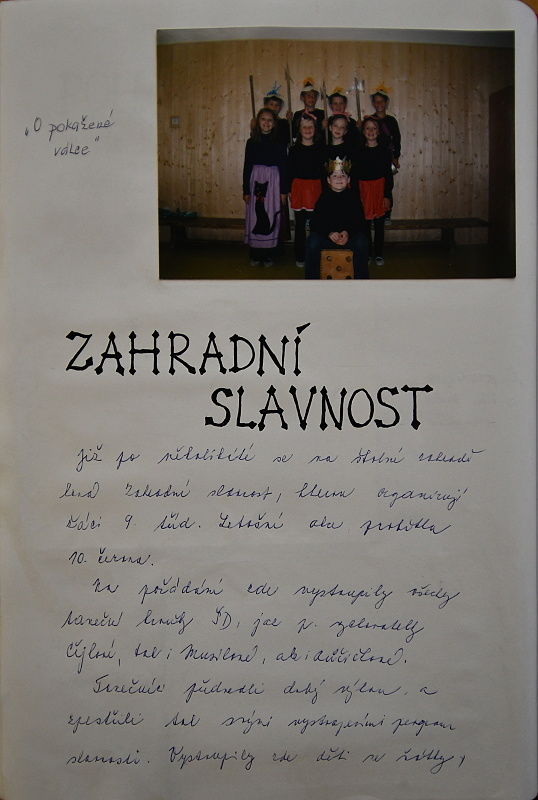 „O pokažené
válce"
ZAHRADNÍ
SLAVNOST
Již po několikáté se na školní zahradě
koná Zahradní slavnost, kterou organizují
žáci 9. tříd. Letošní akce proběhla
10. června.
Na pořádání zde vystoupily všechny
taneční kroužky ŠD, jak p. vychovatelky
, tak i Musilové, ale i
Tanečníci předvedli dobrý výkon, a
zpestřili tak svými vystoupeními program
slavnosti. Vystoupily zde děti ze